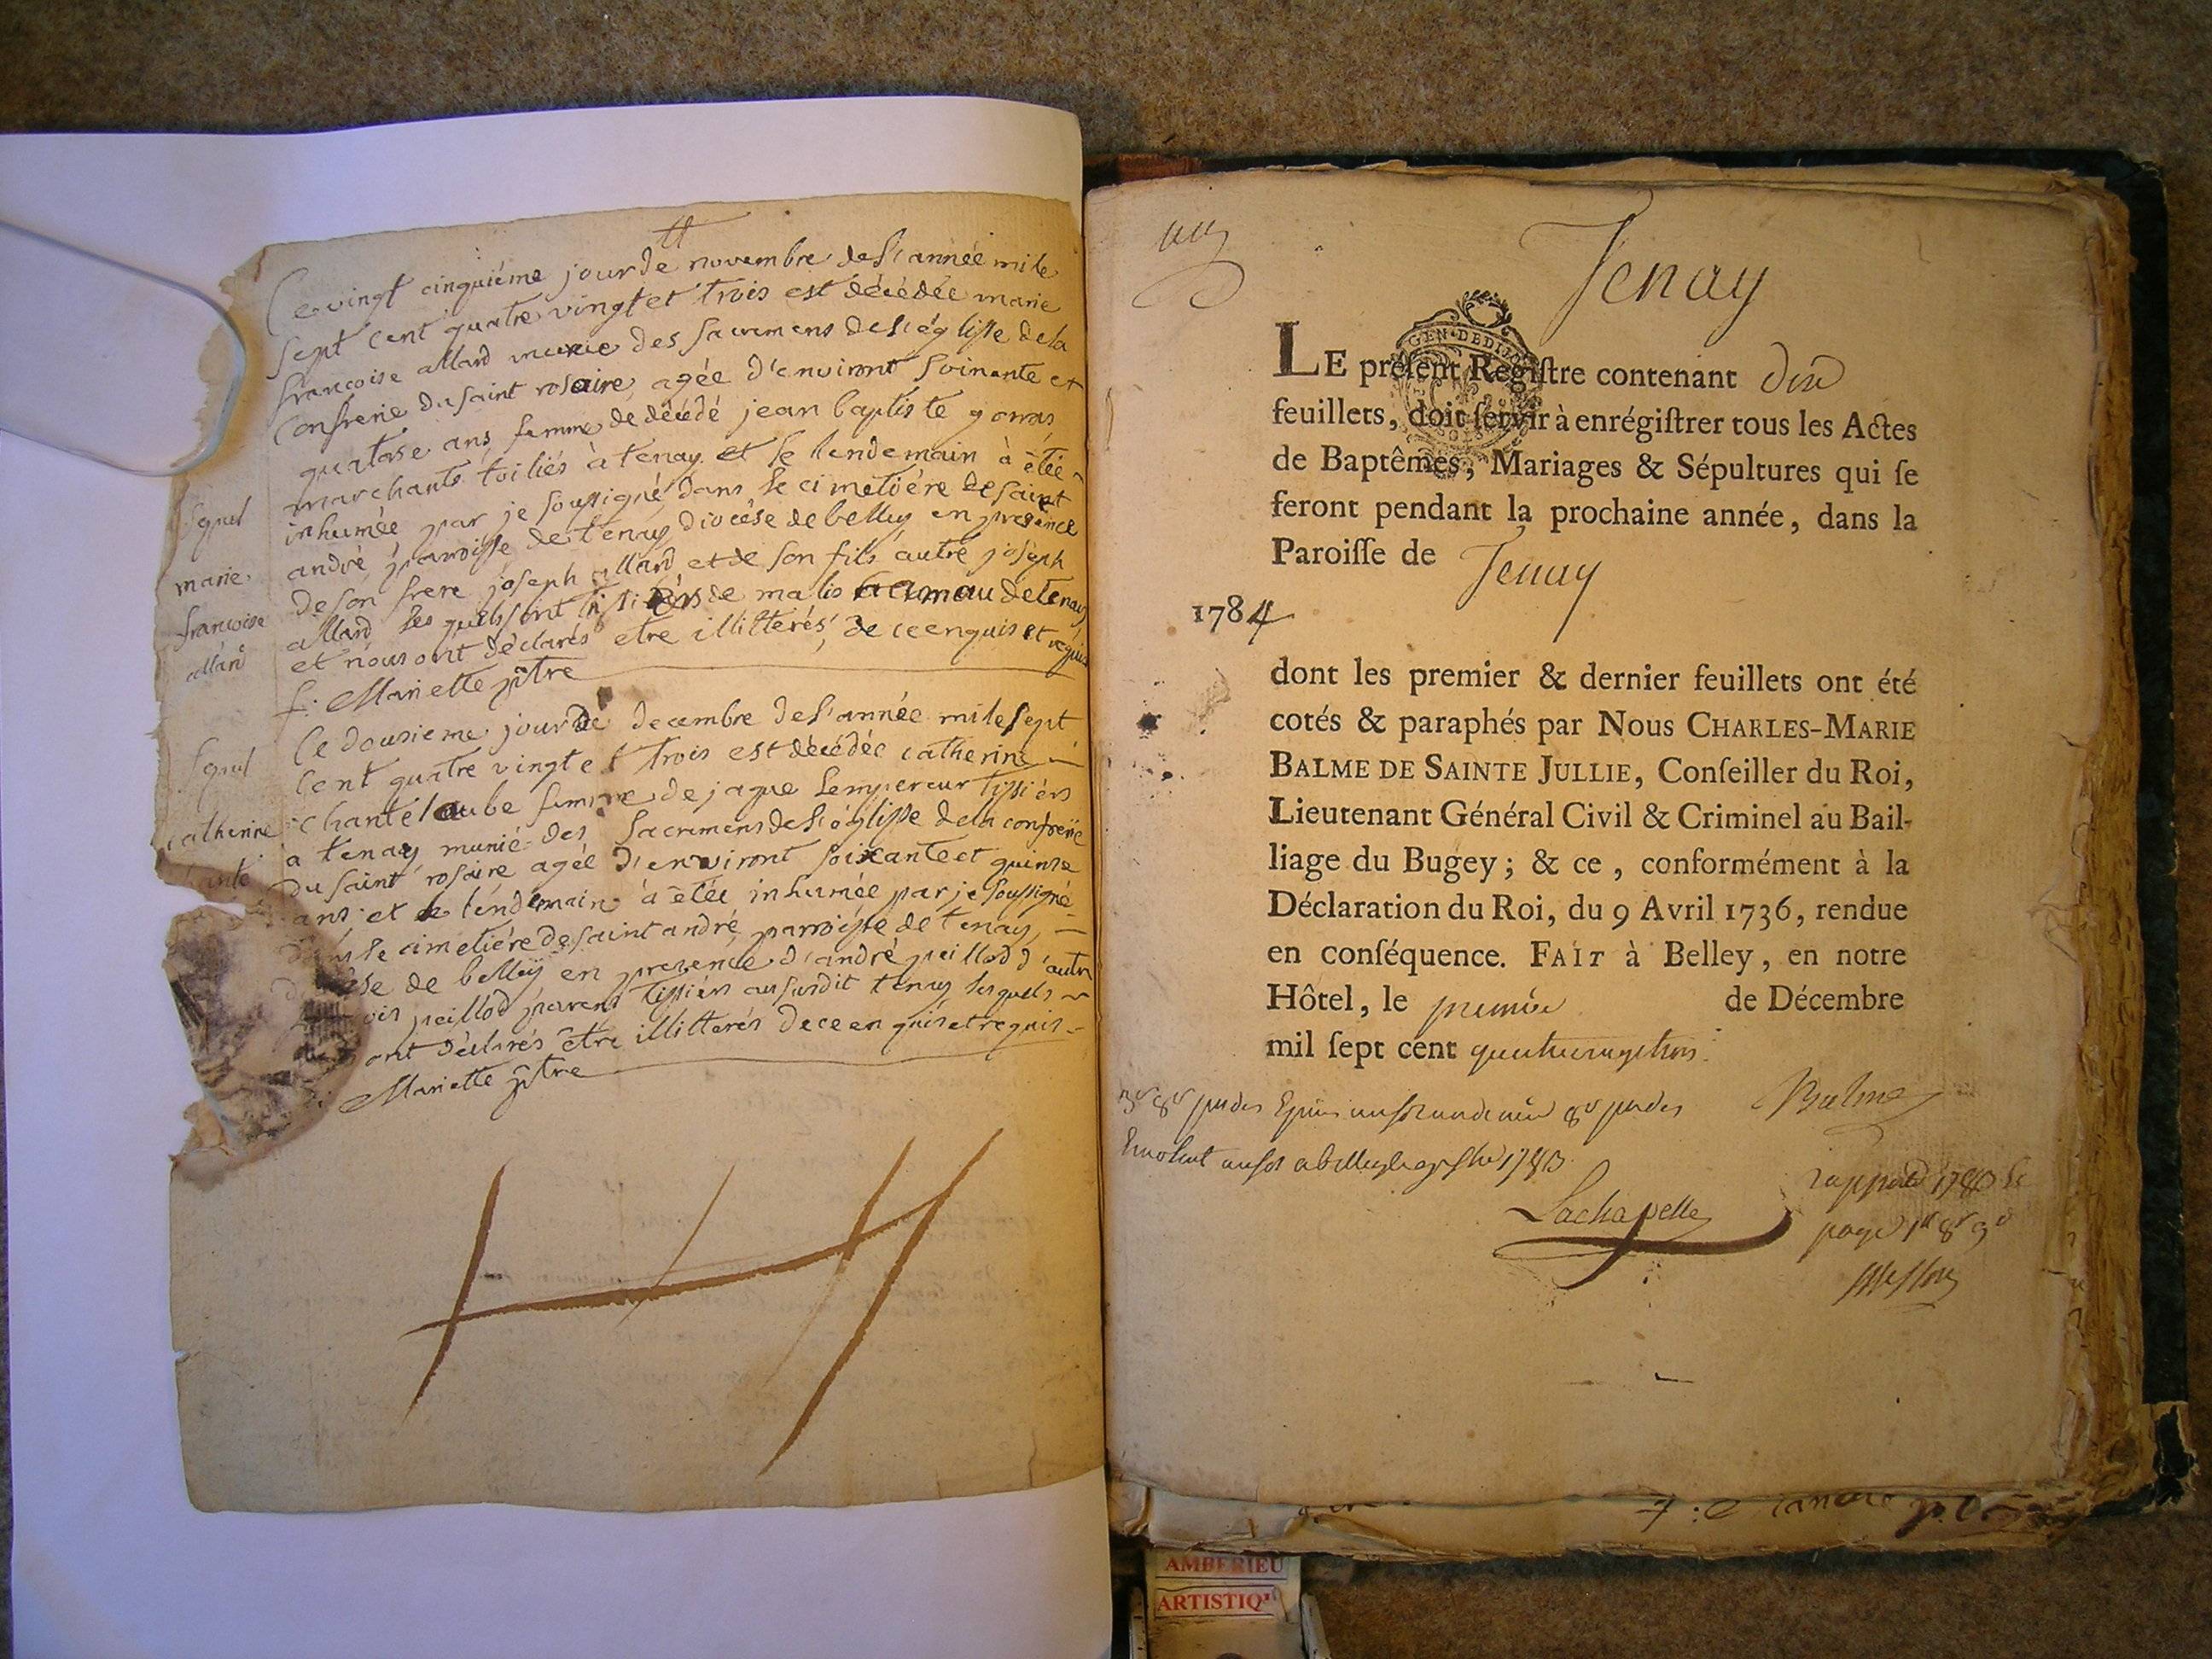 Ce vingt cinquiéme jour de novembre de l'année mile
sept cent quatre vingt et trois est décédée marie
francoise allard munie des sacremens de l'églisse de la
confrerie du saint rosaire, agée d'environt soixante et
quatorse ans femme de décédé jean baptiste gorras
marchants toiliés à tenay et le lendemain à étée
inhumée par je soussigné dans le cimetiére de saint
andré parroisse de tenay diocése de belley en presence
de son frere joseph allard et de son fils autre joseph
allard les quels sont tissiérs de malis hamau de tenay
et nous ont déclarés etre illitterés, de ce enquis et requis
f: Mariette ptre
Sepul
marie
francoise
allard
Ce dousieme jour de decembre de l'année mile sept
cent quatre vingt et trois est décédée catherine
chantélaube femme de jaque Lempereur tissiérs
a tenay munie des sacremens de l'églisse de la confrerie
du saint rosaire agée d'environt soixante et quinse
ans et le lendemain à étée inhumée par je soussigné
dans le cimetiére de saint andré parroisse de tenay
de belley en presence d'andré peillod d'autre
peillod parens tissiérs au surdit tenay lesquels
ont déclarés étre illitterés de ce enquis et requis
Mariette ptre
Sepul
catherine
chanté
Tenay
GEN. DEDILO
LE préſent Regiſtre contenant dix
feuillets, doit ſervir à enrégiſtrer tous les Actes
de Baptêmes, Mariages & Sépultures qui ſe
feront pendant la prochaine année, dans la
Paroiſſe de Tenay
1784
dont les premier & dernier feuillets ont été
cotés & paraphés par Nous CHARLES-MARIE
BALME DE SAINTE JULLIE, Conſeiller du Roi,
Lieutenant Général Civil & Criminel au Bail-
liage du Bugey; & ce, conformément à la
Déclaration du Roi, du 9 Avril 1736, rendue
en conſéquence. FAIT à Belley, en notre
Hôtel, le premier de Décembre
mil ſept cent quatrevingttrois
Balme
1783
Lachapelle
AMBERIEU
ARTISTIQ